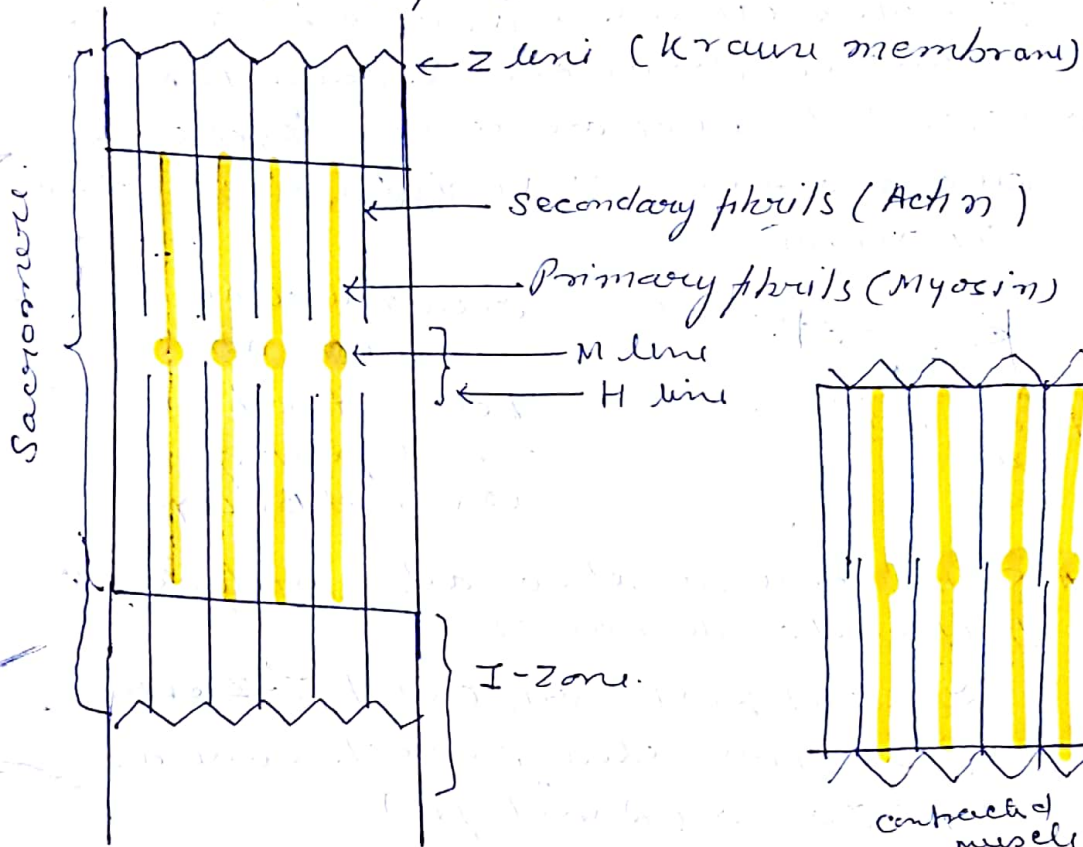 Z line (Krause membrane)
Secondary fibrils (Actin)
Primary fibrils (Myosin)
M line
H line
Sacromere.
I-Zone.
contracted
muscle